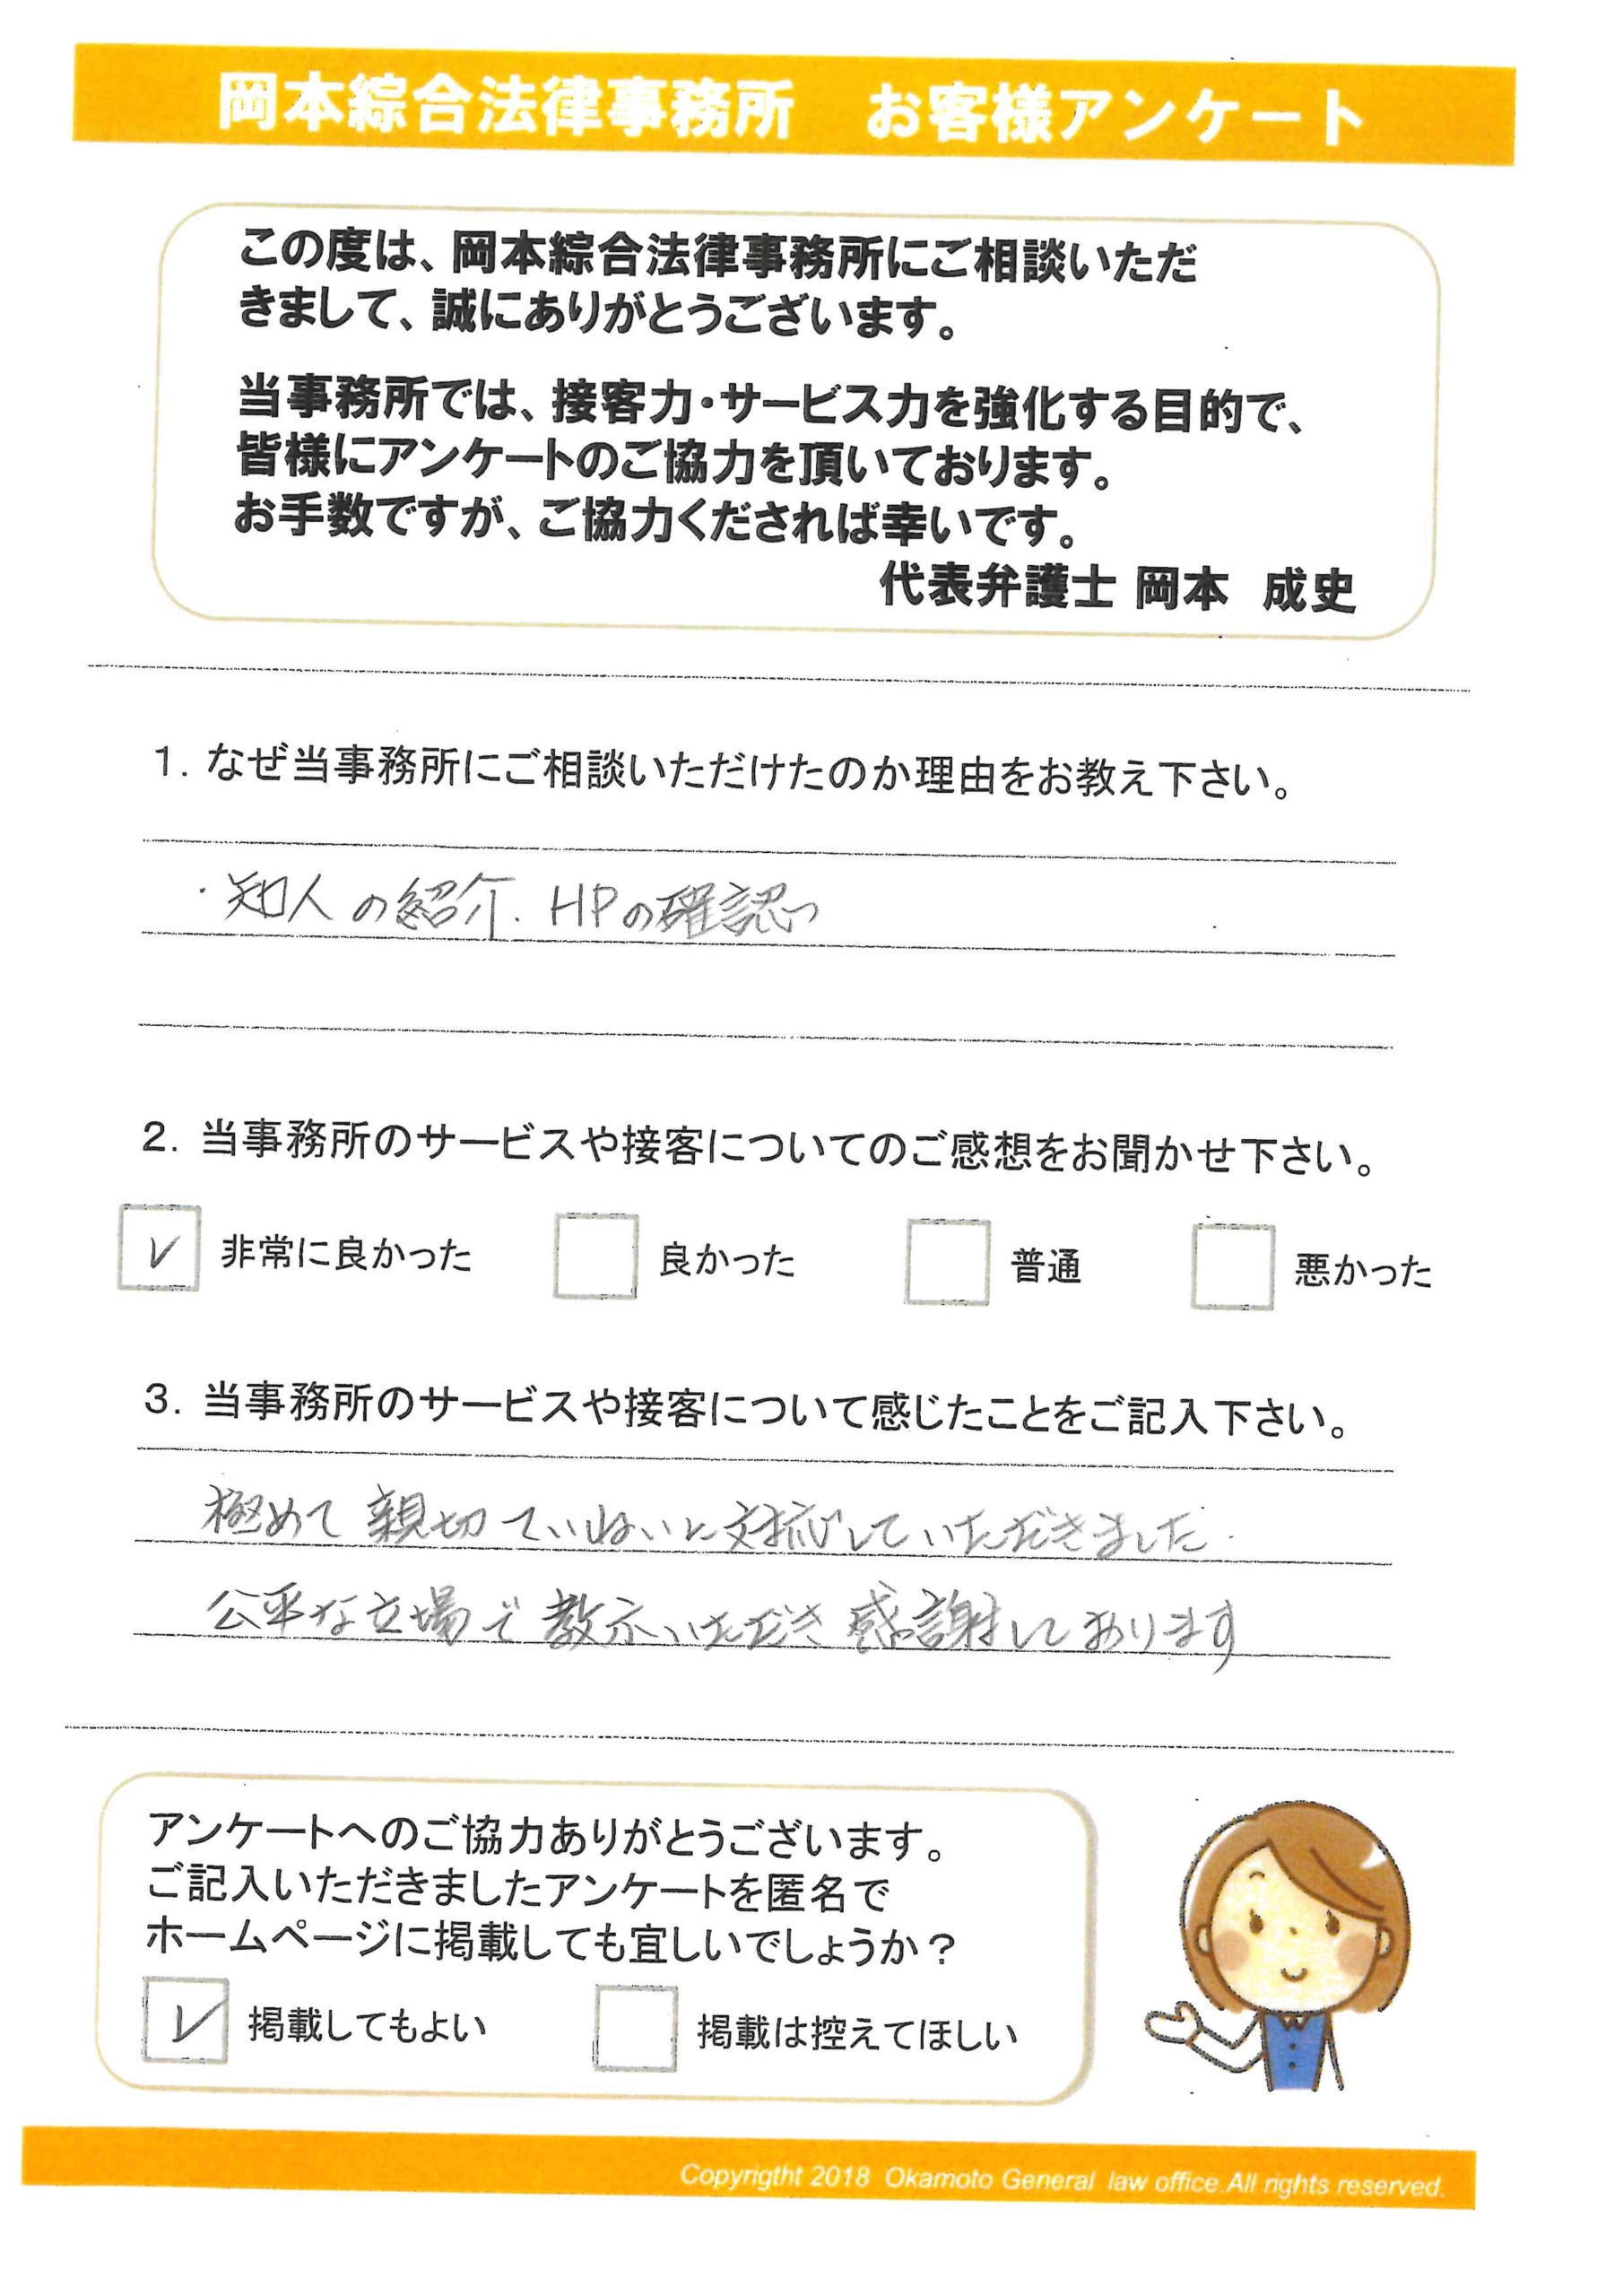 岡本綜合法律事務所　お客様アンケート
この度は、岡本綜合法律事務所にご相談いただ
きまして、誠にありがとうございます。
当事務所では、接客力・サービス力を強化する目的で、
皆様にアンケートのご協力を頂いております。
お手数ですが、ご協力くだされば幸いです。
代表弁護士 岡本　成史
1. なぜ当事務所にご相談いただけたのか理由をお教え下さい。
・知人の紹介. HPの確認
2. 当事務所のサービスや接客についてのご感想をお聞かせ下さい。
非常に良かった　良かった　普通　悪かった
3. 当事務所のサービスや接客について感じたことをご記入下さい。
極めて親切ていねいに対応していただきました.
公平な立場で教示いただき感謝しております
アンケートへのご協力ありがとうございます。
ご記入いただきましたアンケートを匿名で
ホームページに掲載しても宜しいでしょうか？
掲載してもよい　掲載は控えてほしい
Copyrigtht 2018 Okamoto General law office.All rights reserved.